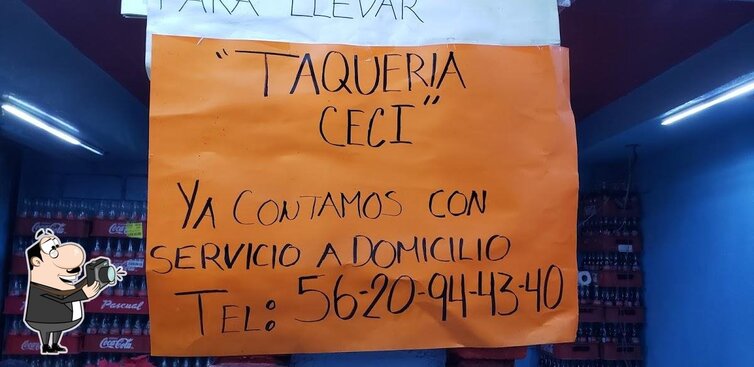 PARA LLEVAR
"TAQUERIA
CECI"
YA CONTAMOS CON
SERVICIO A DOMICILIO
TEL: 56-20-94-43-40
Pascual
Coca-Cola
Coca-Cola